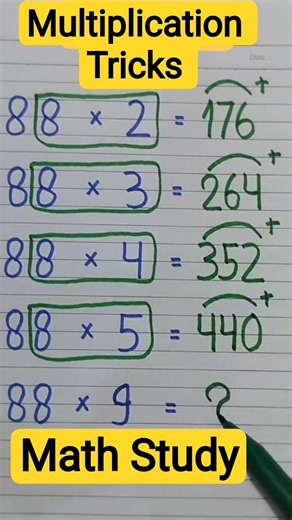 Multiplication
Tricks
88 × 2 = 176 +
88 × 3 = 264 +
88 × 4 = 352 +
88 × 5 = 440 +
88 × 9 = ?
Math Study